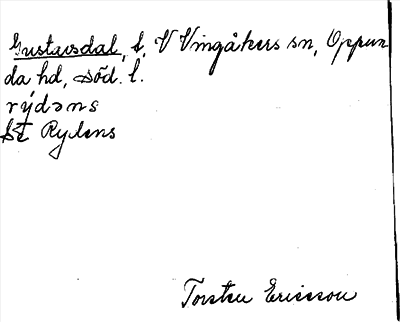 Gustavsdal, t. V Vingåkers sn, Oppun
da hd, Söd. l.
rýdəns
Se Rydens
Torsten Ericsson